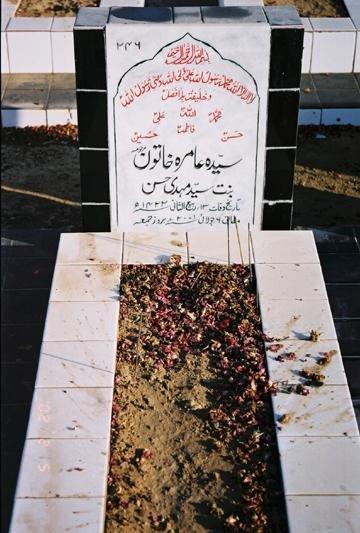 ۲۴۶
بسم اللہ الرحمن الرحیم
لا الہ الا اللہ محمد رسول اللہ علی ولی اللہ وصی رسول اللہ
و خلیفتہ بلا فصل
اللہ
محمد علی
فاطمہ
حسن حسین
سیدہ عامرہ خاتون مرحومہ
بنت سید مہدی حسن
تاریخ وفات ۱۳ ربیع الثانی ۱۴۲۲ھ
مطابق ۶ جولائی ۲۰۰۱ء بروز جمعہ